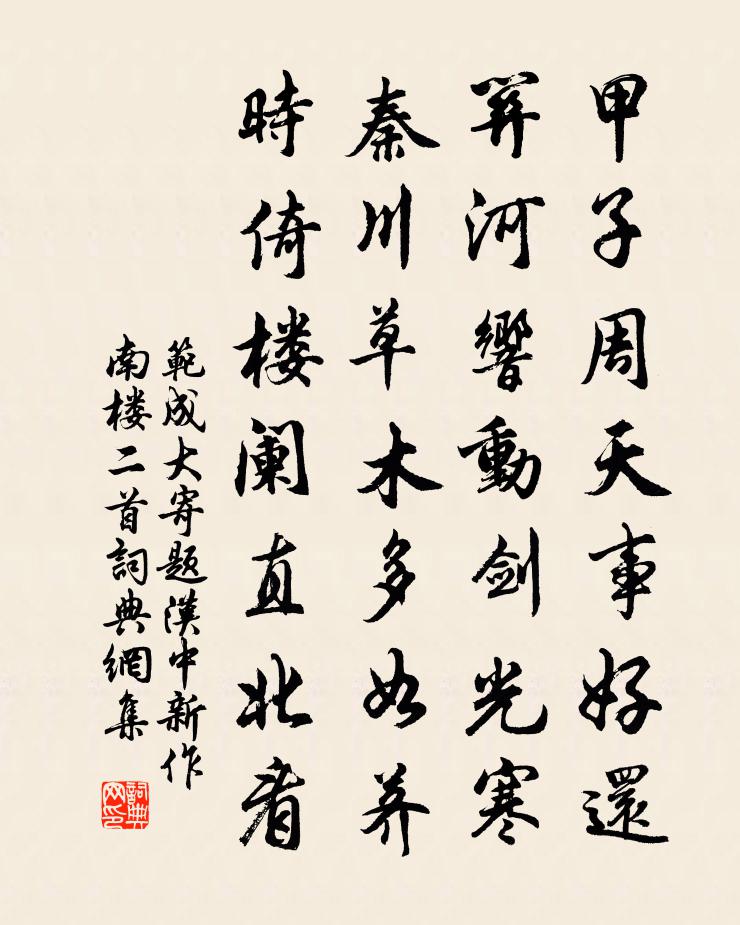 甲子周天事好還
羿河響動劍光寒
秦川草木多如薺
時倚樓闌直北看
範成大寄題漢中新作
南樓二首詞典網集
詞典
网印